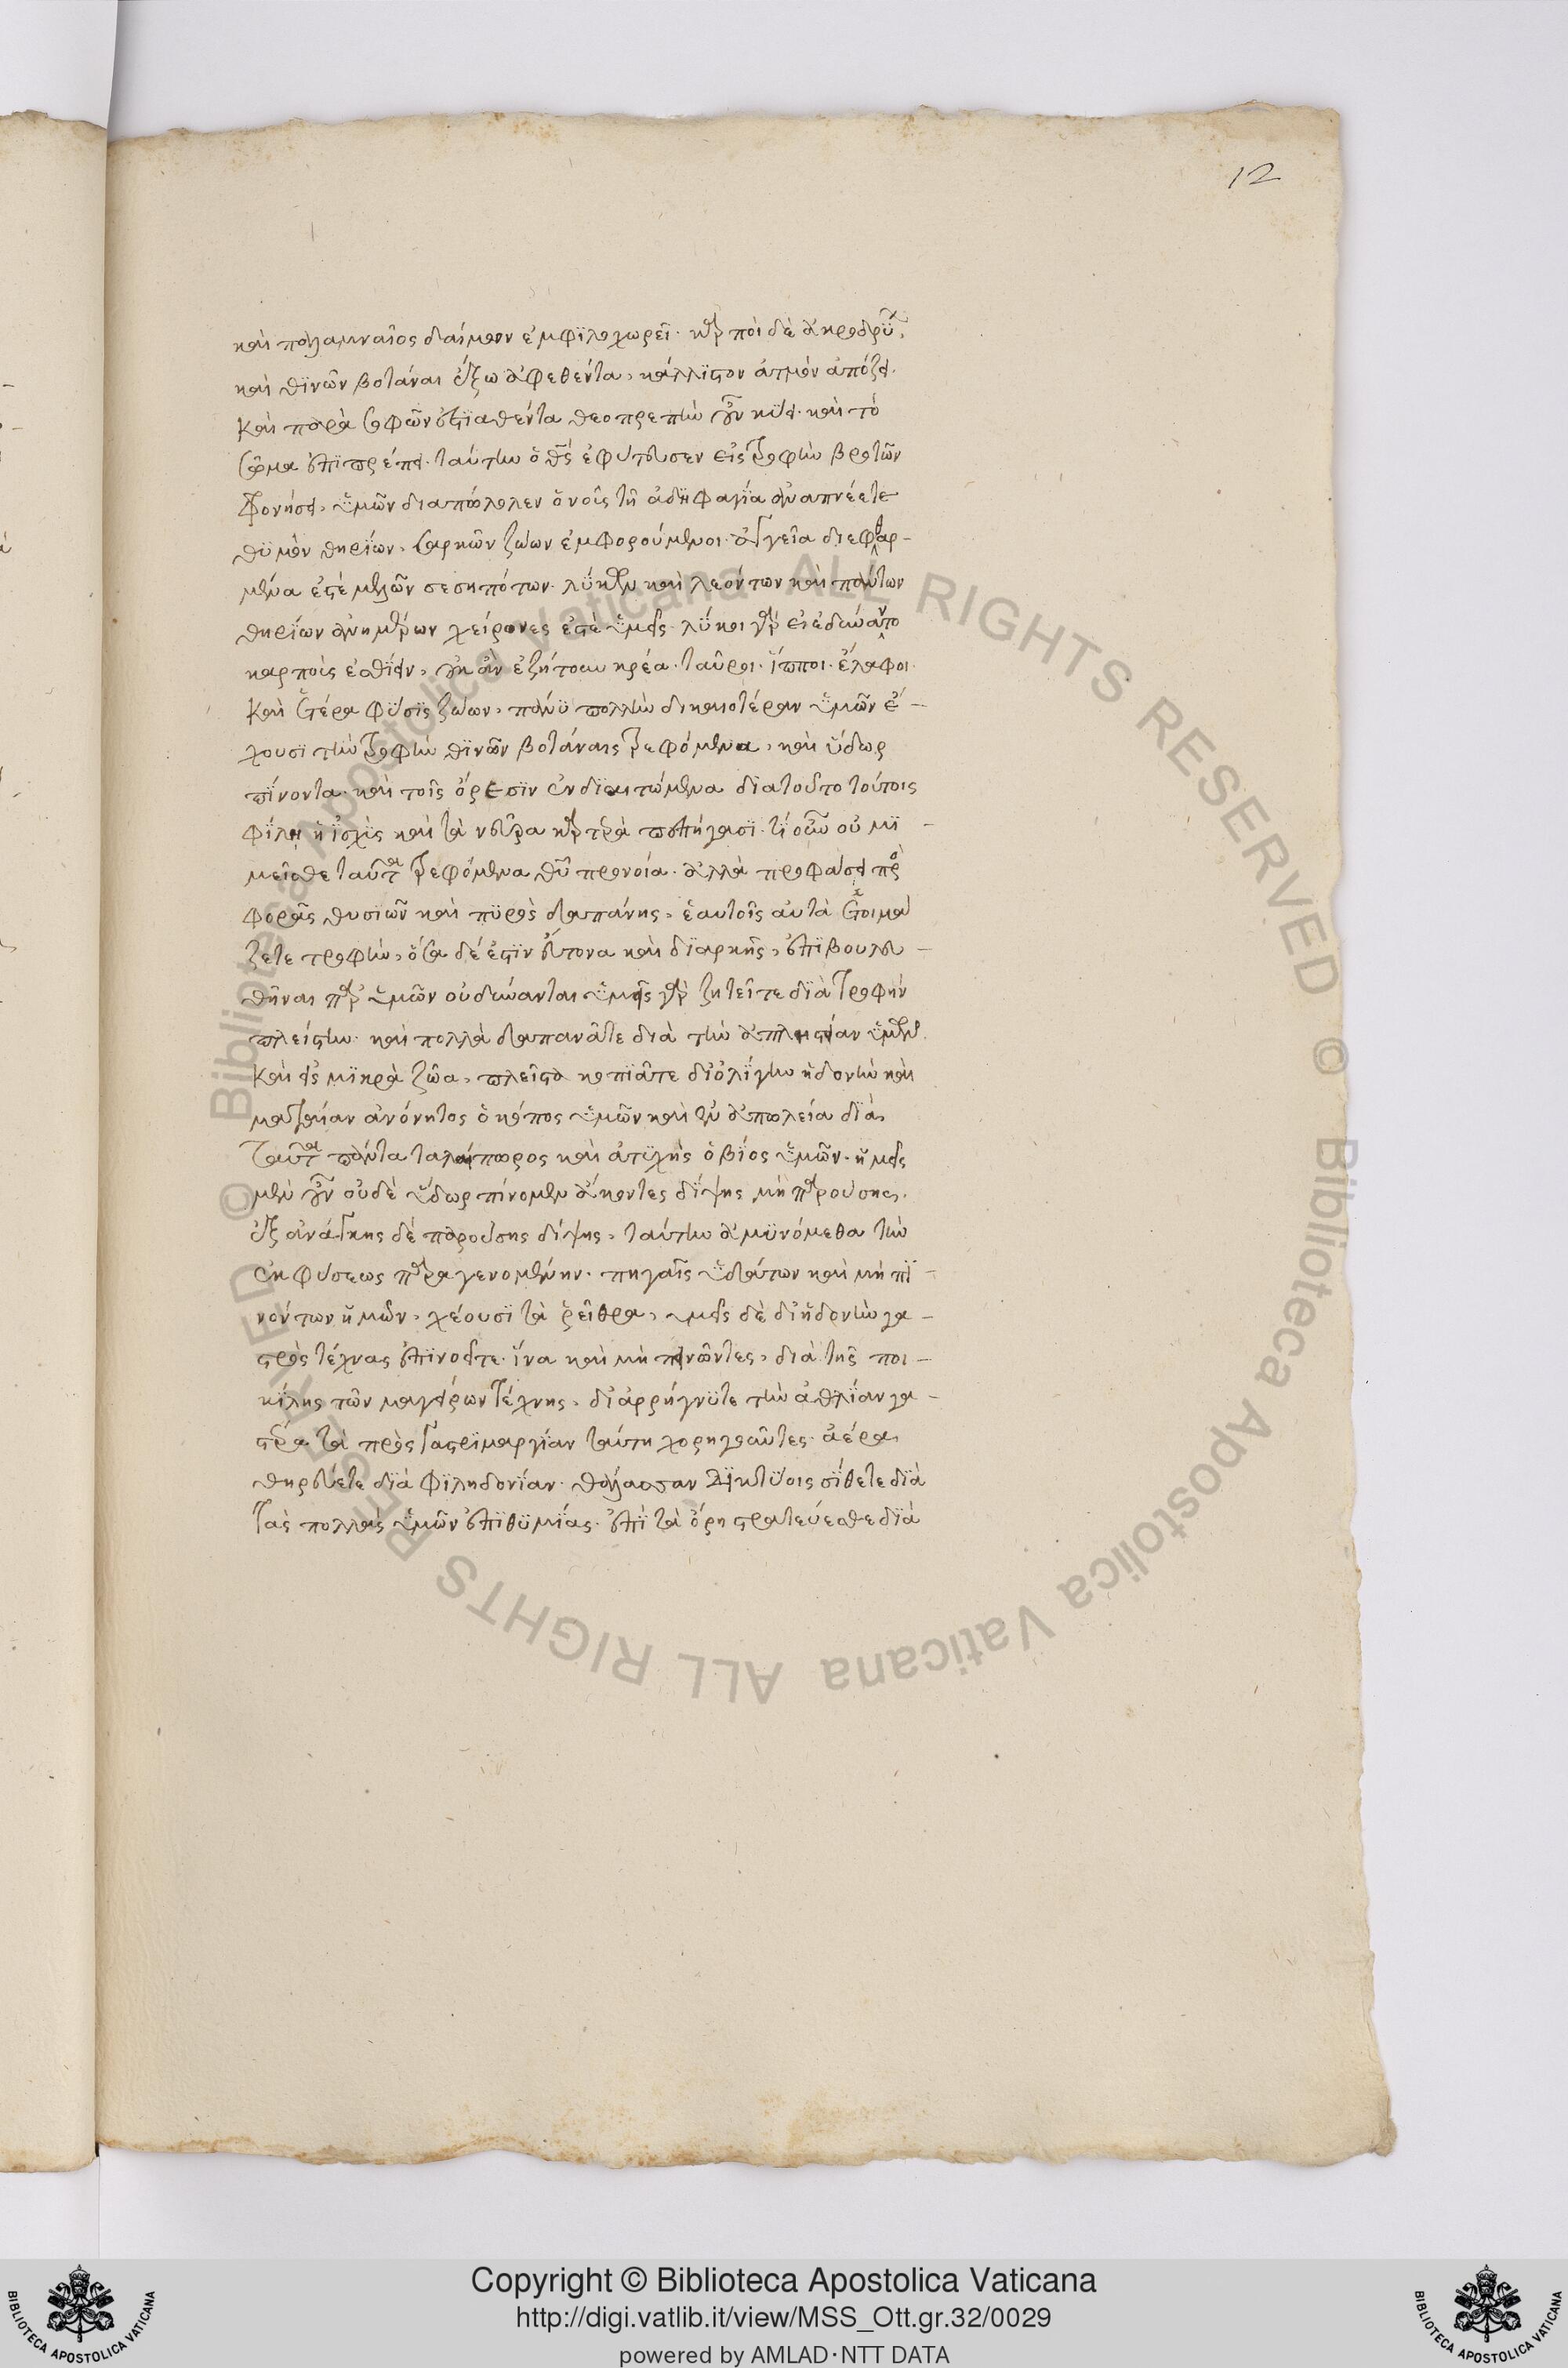 12
καὶ παλαμναῖος δαίμων ἐμφϊλοχωρεῖ· καρποὶ δὲ ἀκροδρύων
καὶ θϊνῶν βοτάναι ἔξω ἀφεθέντα, κάλλϊστον ἀτμὸν ἀπόζει.
καὶ παρὰ σοφῶν ἑστϊαθέντα θεοπρεπῶ νοῦν κϋει· καὶ τὸ
σῶμα ἐπϊτρέπει. ταύτην ὁ θς ἐφύτευσεν εἰς τροφὴν βροτῶν
φρονήσει, ὑμῶν διαπόλωλεν ὁ νοῖς τῇ ἀδηφαγΐα ἀναπνέετε
θϋμὸν θηρΐων, σαρκῶν ζώων ἐμφορούμενοι. ἀγγεῖα διεφθαρ-
μένα ἐστὲ μελῶν σεσηπότων. λύκων καὶ λεόντων καὶ πάντων
θηρΐων ἀνημέρων χείρονες ἐστὲ ὑμεῖς. λύκοι γὰρ εἰ ἐδύναντο
καρποὺς ἐσθΐειν, οὐκ ἂν ἐζήτουν κρέα. ταῦροι. ἵπποι. ἔλαφοι.
καὶ ἑτέρα φϋσϊς ζώων, πάνϋ πολλὴν δικαιοτέραν ὑμῶν ἔ-
χουσι τὴν τροφὴν θϊνῶν βοτάναις τρεφόμενα, καὶ ὕδωρ
πΐνοντα. καὶ τοῖς ὄρεσϊν ἐνδϊαιτώμενα διατοῦτο τούτοις
φΐλη ἡ ἰσχϊς καὶ τὰ νεῦρα καρτερὰ πεπήγασϊ. τΐ οὖν οὐ μϊ-
μεῖσθε ταῦτα τρεφόμενα θῦ προνοία. ἀλλὰ προφάσει προσ
φορᾶς θυσϊῶν καὶ πϋρὸς δαπάνης, ἑαυτοῖς αὐτὰ ἑτοιμά
ζετε τροφὴν, ὅσα δέ ἐστϊν εὔτονα καὶ διαρκῆς, ἐπϊβουλευ-
θῆναι παρ' ὑμῶν οὐ δύνανται ὑμεῖς γὰρ ζητεῖτε διὰ τροφήν
πλείστην. καὶ πολλὰ δαπανᾶτε διὰ τὴν ἀπληστΐαν ὑμῶν.
καὶ εἰς μϊκρὰ ζῶα, πλεῖστα κοπϊᾶτε δι' ὀλΐγην ἡδονὴν καὶ
ματαΐαν ἀνόνητος ὁ κόπος ὑμῶν καὶ ἐν ἀπωλεία διὰ
ταῦτα πάντα ταλαίπωρος καὶ ἀτϋχὴς ὁ βΐος ὑμῶν. ἡμεῖς
μὲν οὖν οὐδὲ ὕδωρ πίνομεν ἄκοντες δΐψης μὴ παρούσης.
ἐξ ἀνάγκης δὲ παρούσης δίψης, ταύτην ἀμϋνόμεθα τὴν
ἐκ φύσεως παραγενομένην. πηγαῖς ὑδάτων καὶ μὴ πϊ-
νόντων ἡμῶν, χέουσϊ τὰ ῥεῖθρα, ὑμεῖς δὲ δι' ἡδονὴν γα-
στρὸς τέχνας ἐπϊνοεῖτε. ἵνα καὶ μὴ πεινῶντες, διὰ τῆς ποι-
κΐλης τῶν μαγείρων τέχνης, διαρρήγνϋτε τὴν ἀθλΐαν γα-
στέρα τὰ πρὸς γαστρϊμαργΐαν ταύτη χορηγοῦντες. ἀέρα
θηρεύετε διὰ φϊληδονΐαν. θάλασσαν δϊκτϋοις σΐθετε διὰ
τὰς πολλὰς ὑμῶν ἐπϊθϋμΐας. ἐπὶ τὰ ὄρη στρατεύεσθε διὰ
Copyright © Biblioteca Apostolica Vaticana
http://digi.vatlib.it/view/MSS_Ott.gr.32/0029
powered by AMLAD·NTT DATA